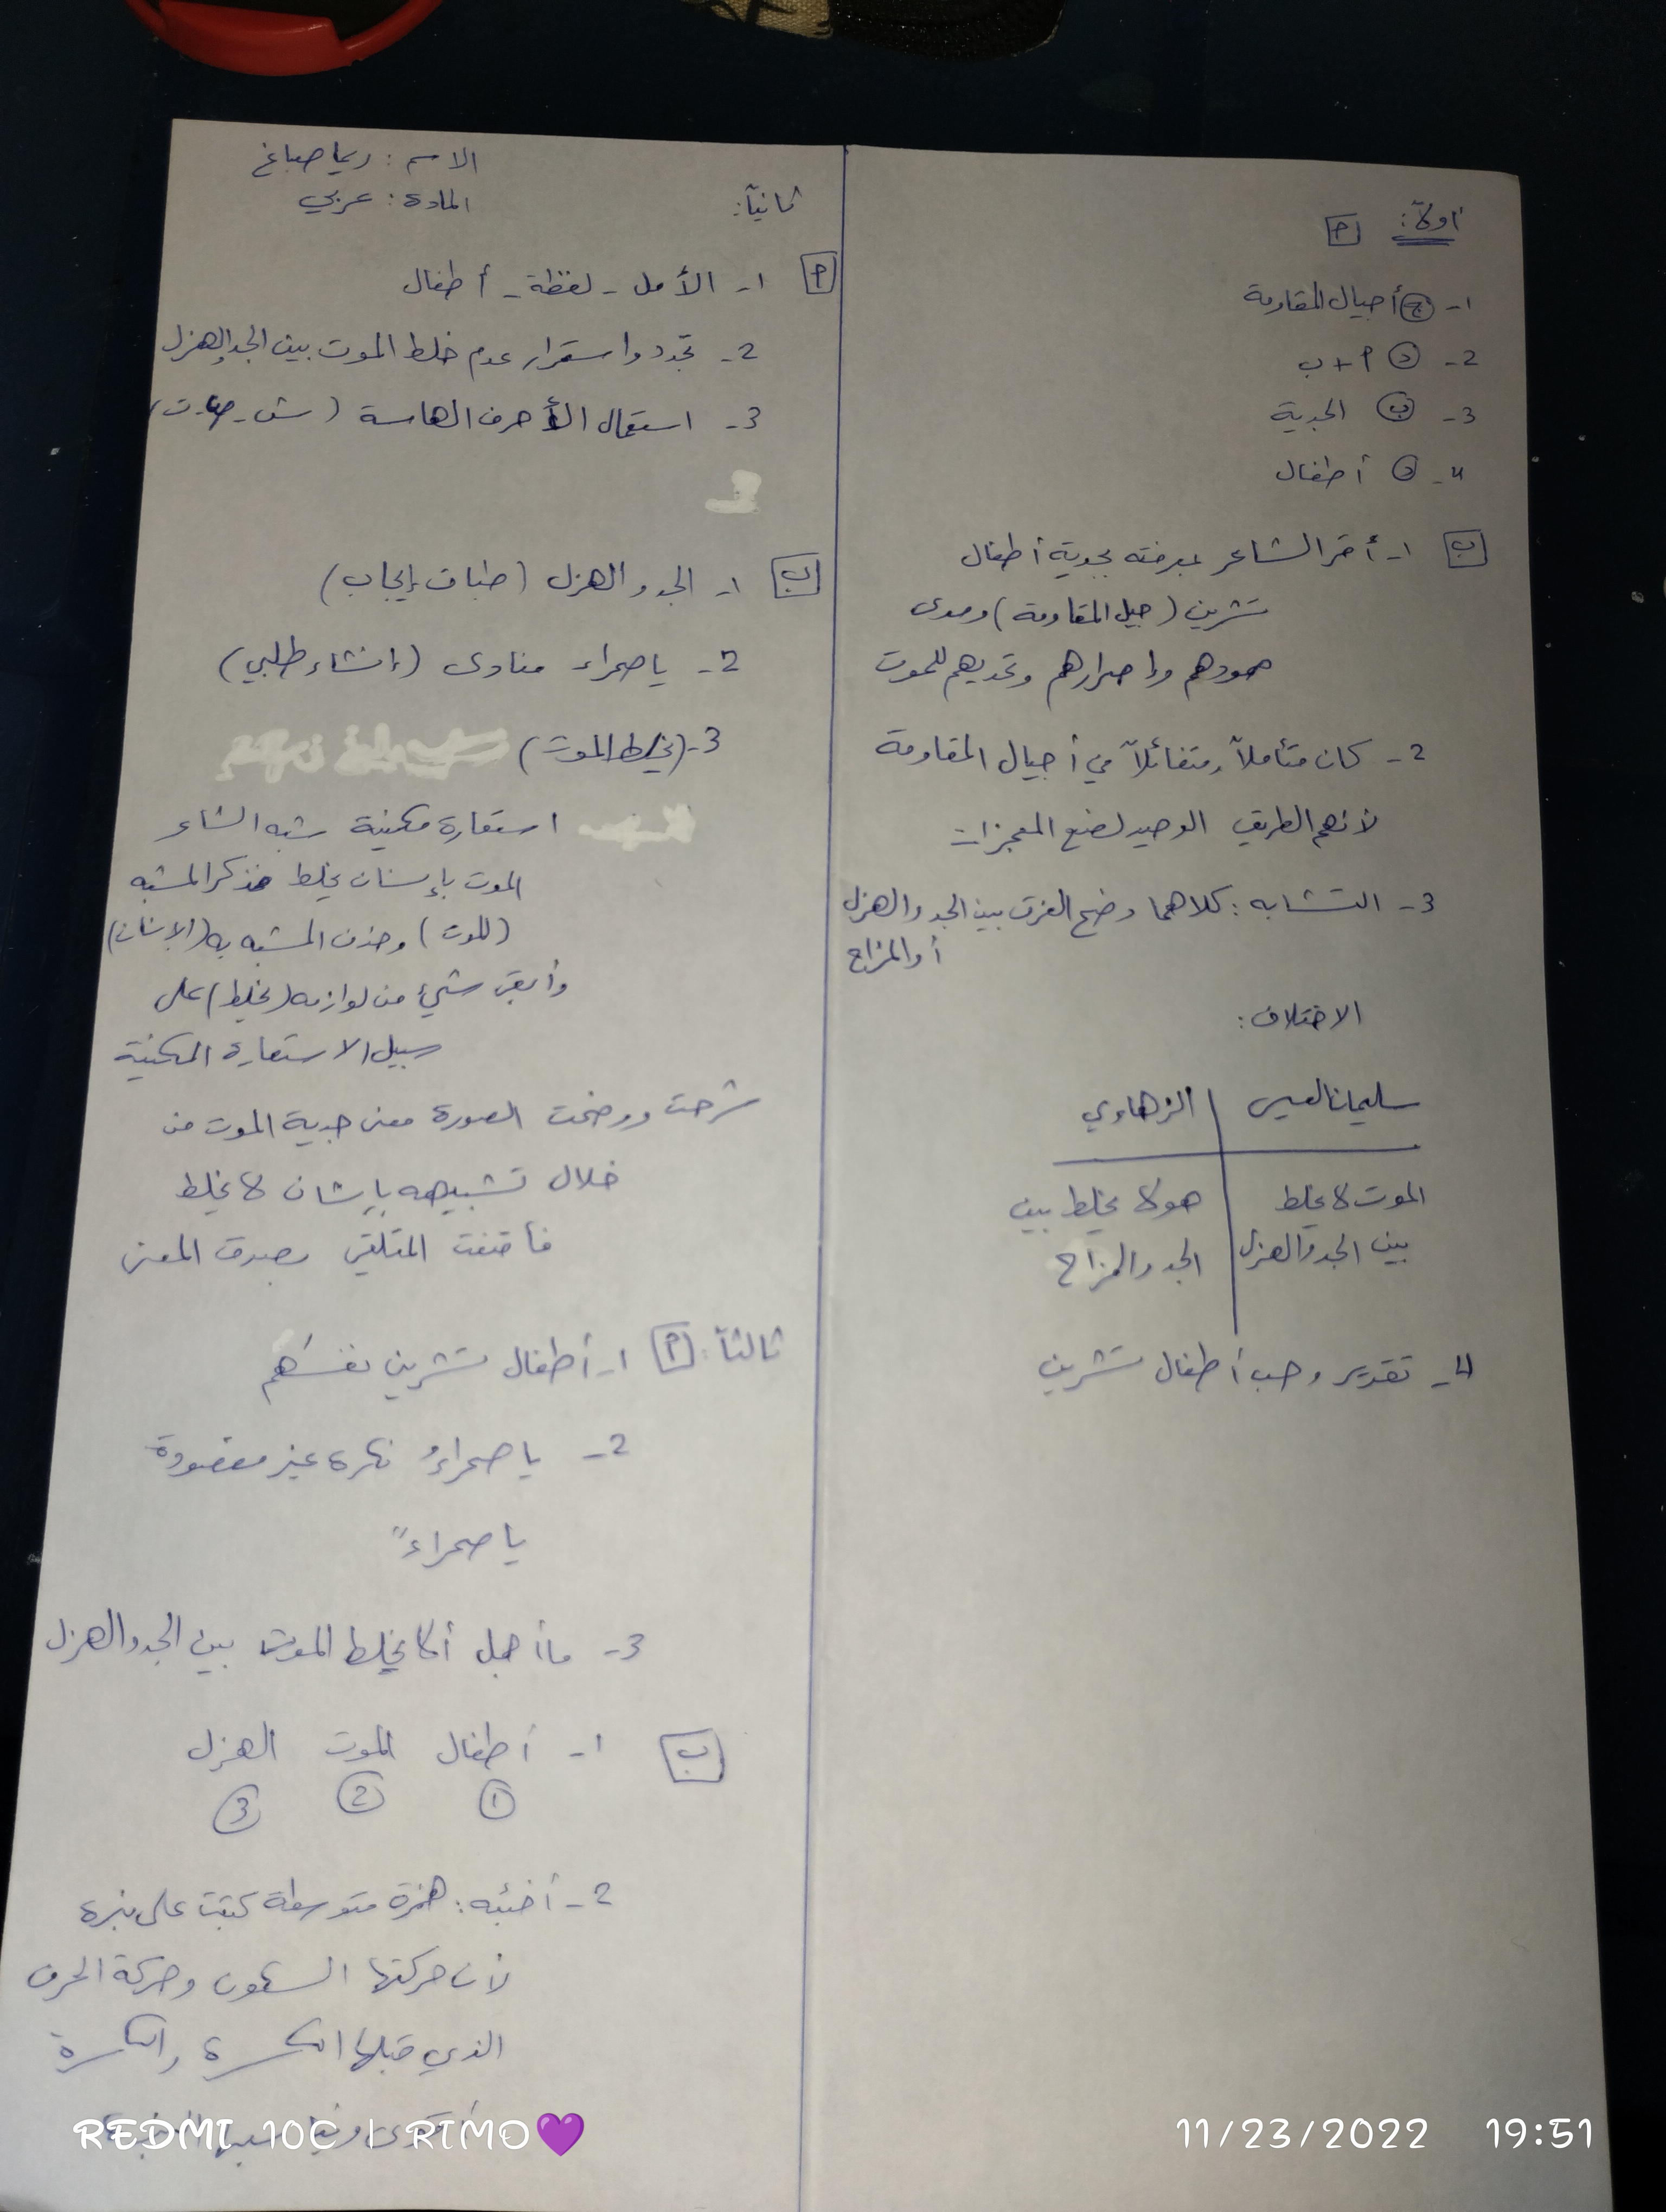 أولاً: أ
1- ج أجيال المقاومة
2- د أ + ب
3- ب الجدية
4- د أطفال
ب 1- أقر الشاعر بمعرفته بجدية أطفال
تشرين (جيل المقاومة) ومدى
صمودهم وإصرارهم وتحديهم للموت
2- كان متأملاً ومتفائلاً في أجيال المقاومة
لأنهم الطريق الوحيد لصنع المعجزات
3- التشابه: كلاهما وضح الفرق بين الجد والهزل
أو المزاح
الاختلاف:
سليمان العيسى | الزهاوي
الموت لا يخلط | هو لا يخلط بين
بين الجد والهزل | الجد والمزاح
4- تقدير وحب أطفال تشرين
الاسم: ريما صباغ
المادة: عربي
ثانياً:
أ 1- الأمل - لفظة - أطفال
2- تجدد واستقرار عدم خلط الموت بين الجد والهزل
3- استعمال الأحرف الهامسة (ش - ص - ت)
ب 1- الجد والهزل (طباق إيجاب)
2- يا صحراء منادى (إنشاء طلبي)
3- (يخلط الموت)
استعارة مكنية شبه الشاعر
الموت بإنسان يخلط فذكر المشبه
(الموت) وحذف المشبه به (الإنسان)
وأبقى شيء من لوازمه (يخلط) على
سبيل الاستعارة المكنية
شرحت ووضحت الصورة معنى جدية الموت من
خلال تشبيهه بإنسان لا يخلط
فأقنعت المتلقي بصدق المعنى
ثالثاً: أ 1- أطفال تشرين نفسُهم
2- يا صحراءُ نكرة غير مقصودة
يا صحراءً
3- ما أجمل ألا يخلط الموت بين الجد والهزل
ب 1- أطفال الموت الهزل
1 2 3
2- أخبئه: همزة متوسطة كتبت على نبرة
لأن حركتها السكون وحركة الحرف
الذي قبلها الكسرة والكسرة
REDMI 10C | RIMO💜
11/23/2022 19:51